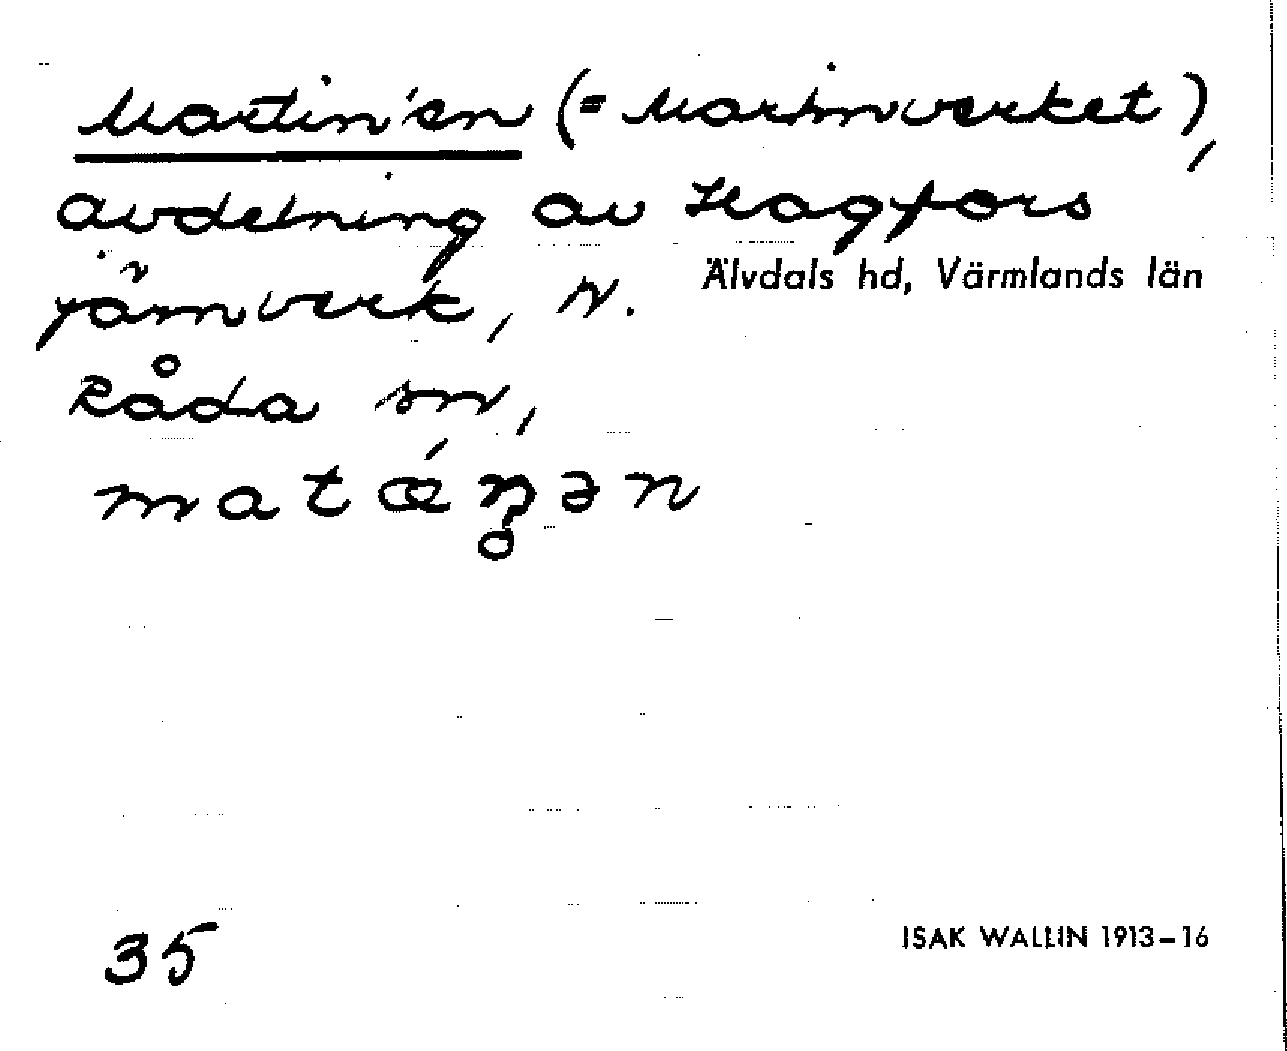 Martin'en (= Martinverket),
avdelning av Hagfors
Älvdals hd, Värmlands län
järnverk, N.
Råda sn,
35
ISAK WALLIN 1913-16